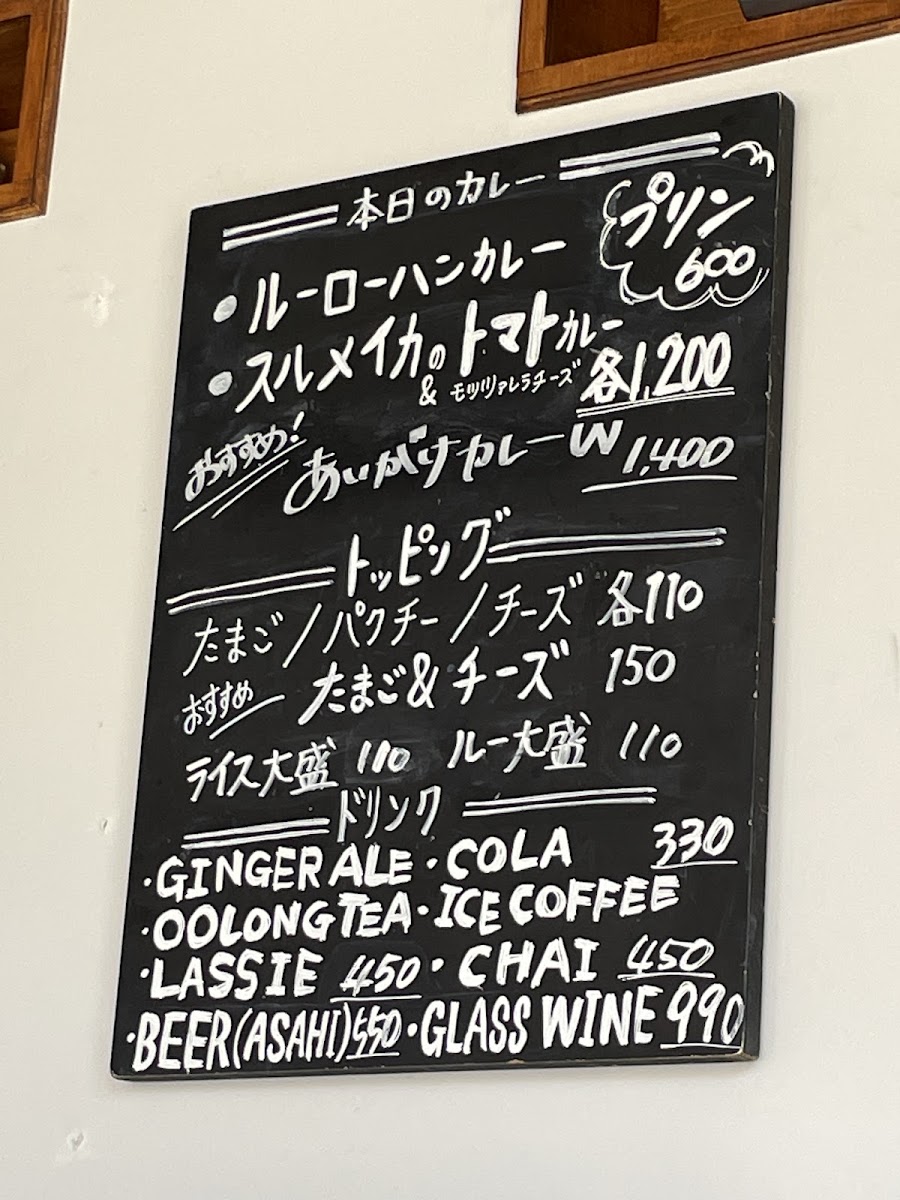 本日のカレー
プリン
600
・ルーローハンカレー
・スルメイカのトマトカレー
& モッツァレラチーズ 各1,200
おすすめ! あいがけカレーW 1,400
トッピング
たまご/パクチー/チーズ 各110
おすすめ たまご&チーズ 150
ライス大盛 110 ルー大盛 110
ドリンク
・GINGER ALE ・COLA 330
・OOLONG TEA ・ICE COFFEE
・LASSIE 450 ・CHAI 450
・BEER(ASAHI) 550 ・GLASS WINE 990